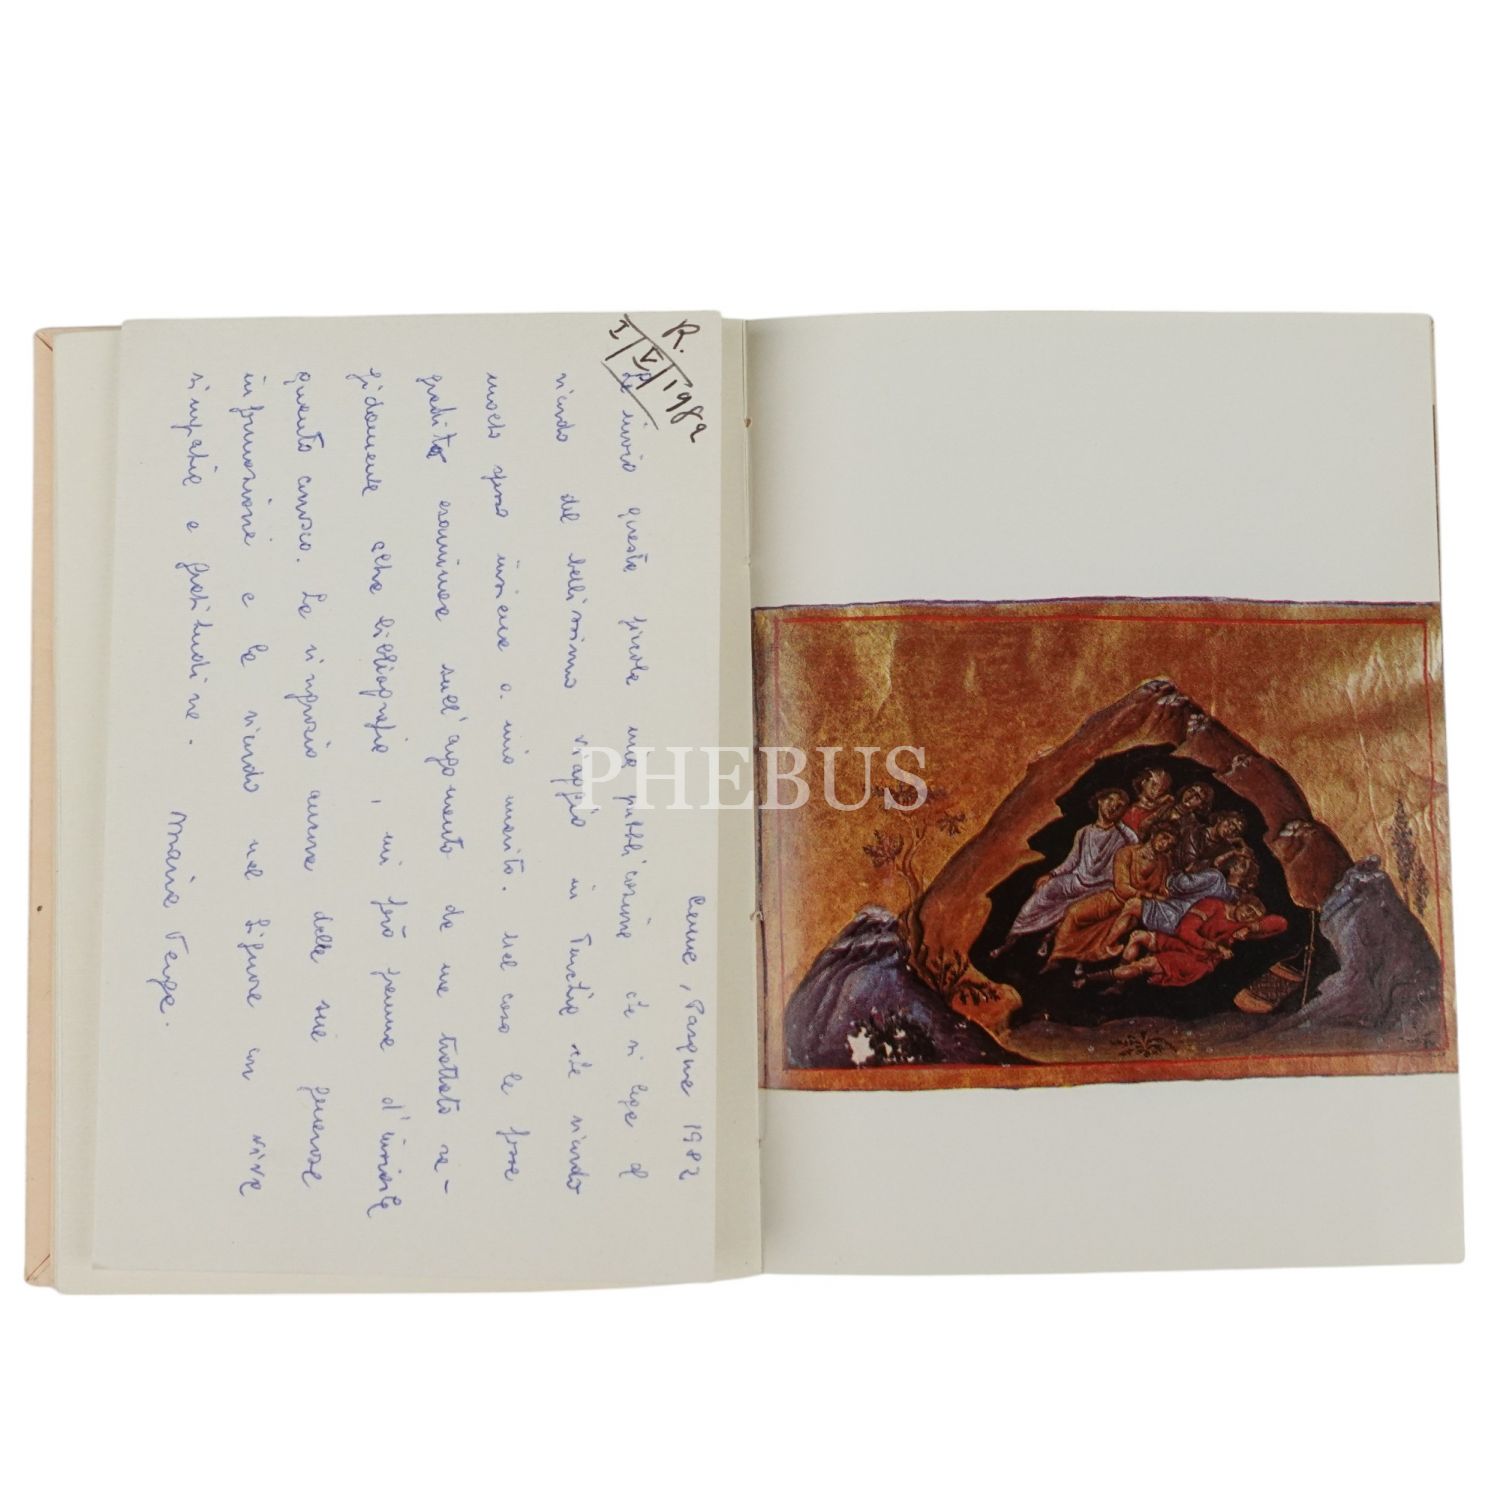 R.
I/V/1982
Roma, Pasqua 1982
Le invio questa piccola mia pubblicazione che si lega al
ricordo del bellissimo viaggio in Turchia che ricordo
molto spesso insieme a mio marito. Nel caso le fosse
gradito esaminare sull'argomento da me trattato ra-
pidamente altra bibliografia, mi farò premura d'inviarle
quanto conosco. La ringrazio ancora delle sue generose
informazioni e la ricordo nel Signore con viva
simpatia e gratitudine.
Maria
PHEBUS